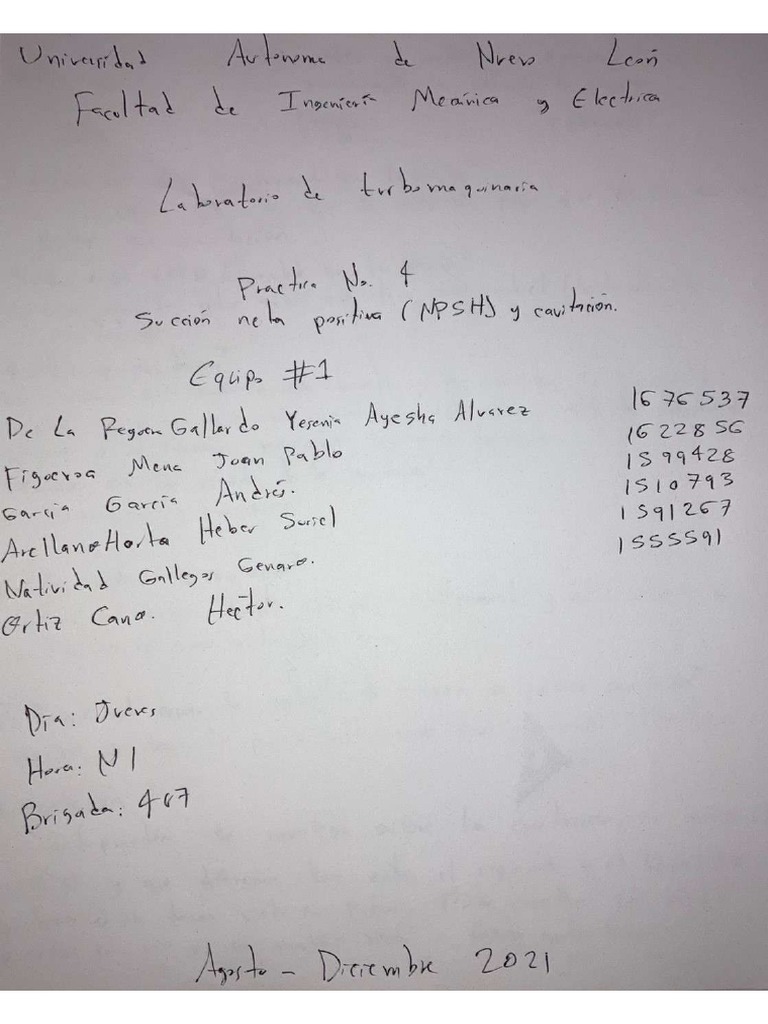 Universidad Autonoma de Nuevo León
Facultad de Ingeniería Mecánica y Electrica
Laboratorio de turbomaquinaria
Practica No. 4
Succión neta positiva (NPSH) y cavitación.
Equipo #1
De La Gallardo Yesenia Ayesha Alvarez 1676537
Figueroa Mena Juan Pablo 1622856
García García Andrés. 1599428
Arellano Horta Heber Suriel 1510793
Natividad Gallegos Genaro. 1591267
Ortiz Cano. Hector. 1555591
Día: Jueves
Hora: N1
Brigada: 407
Agosto - Diciembre 2021